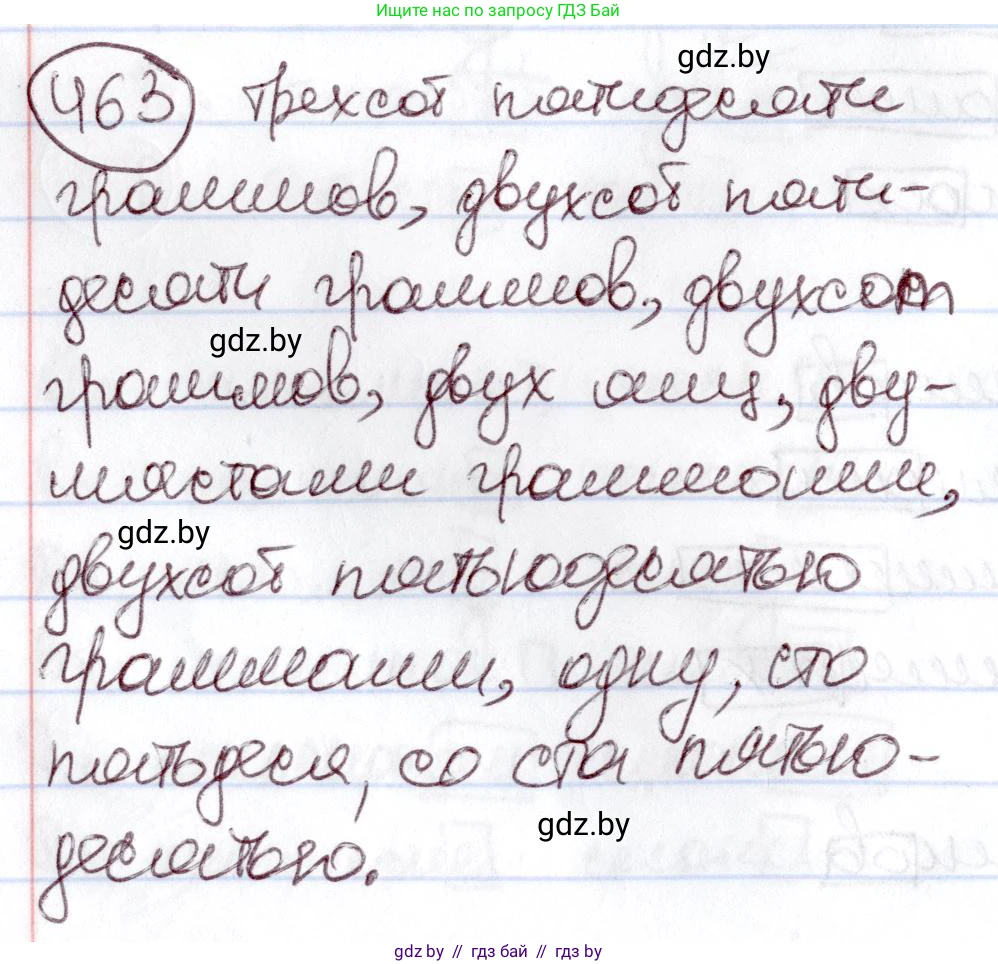 Ищите нас по запросу ГДЗ Бай
gdz.by
463 трехсот пятидесяти
граммов, двухсот пяти-
десяти граммов, двухсот
gdz.by
граммов, двух яиц, дву-
мястами граммами,
gdz.by
двухсот пятьюдесятью
граммами, одну, сто
пятьдеся, со ста пятью-
gdz.by
десятью.
gdz.by // гдз бай // гдз by